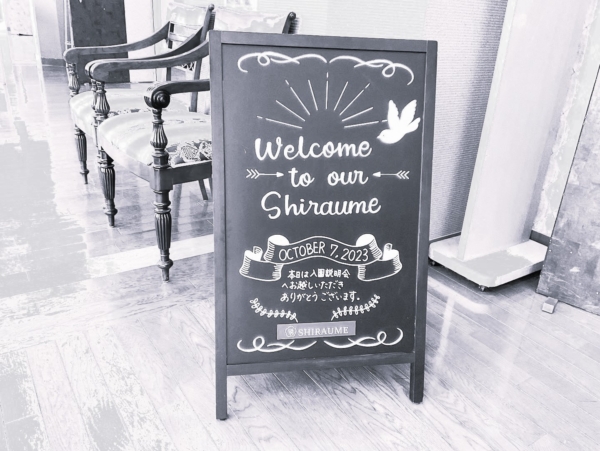 Welcome
to our
Shiraume
OCTOBER 7, 2023
本日は入園説明会
へお越しいただき
ありがとうございます。
SHIRAUME